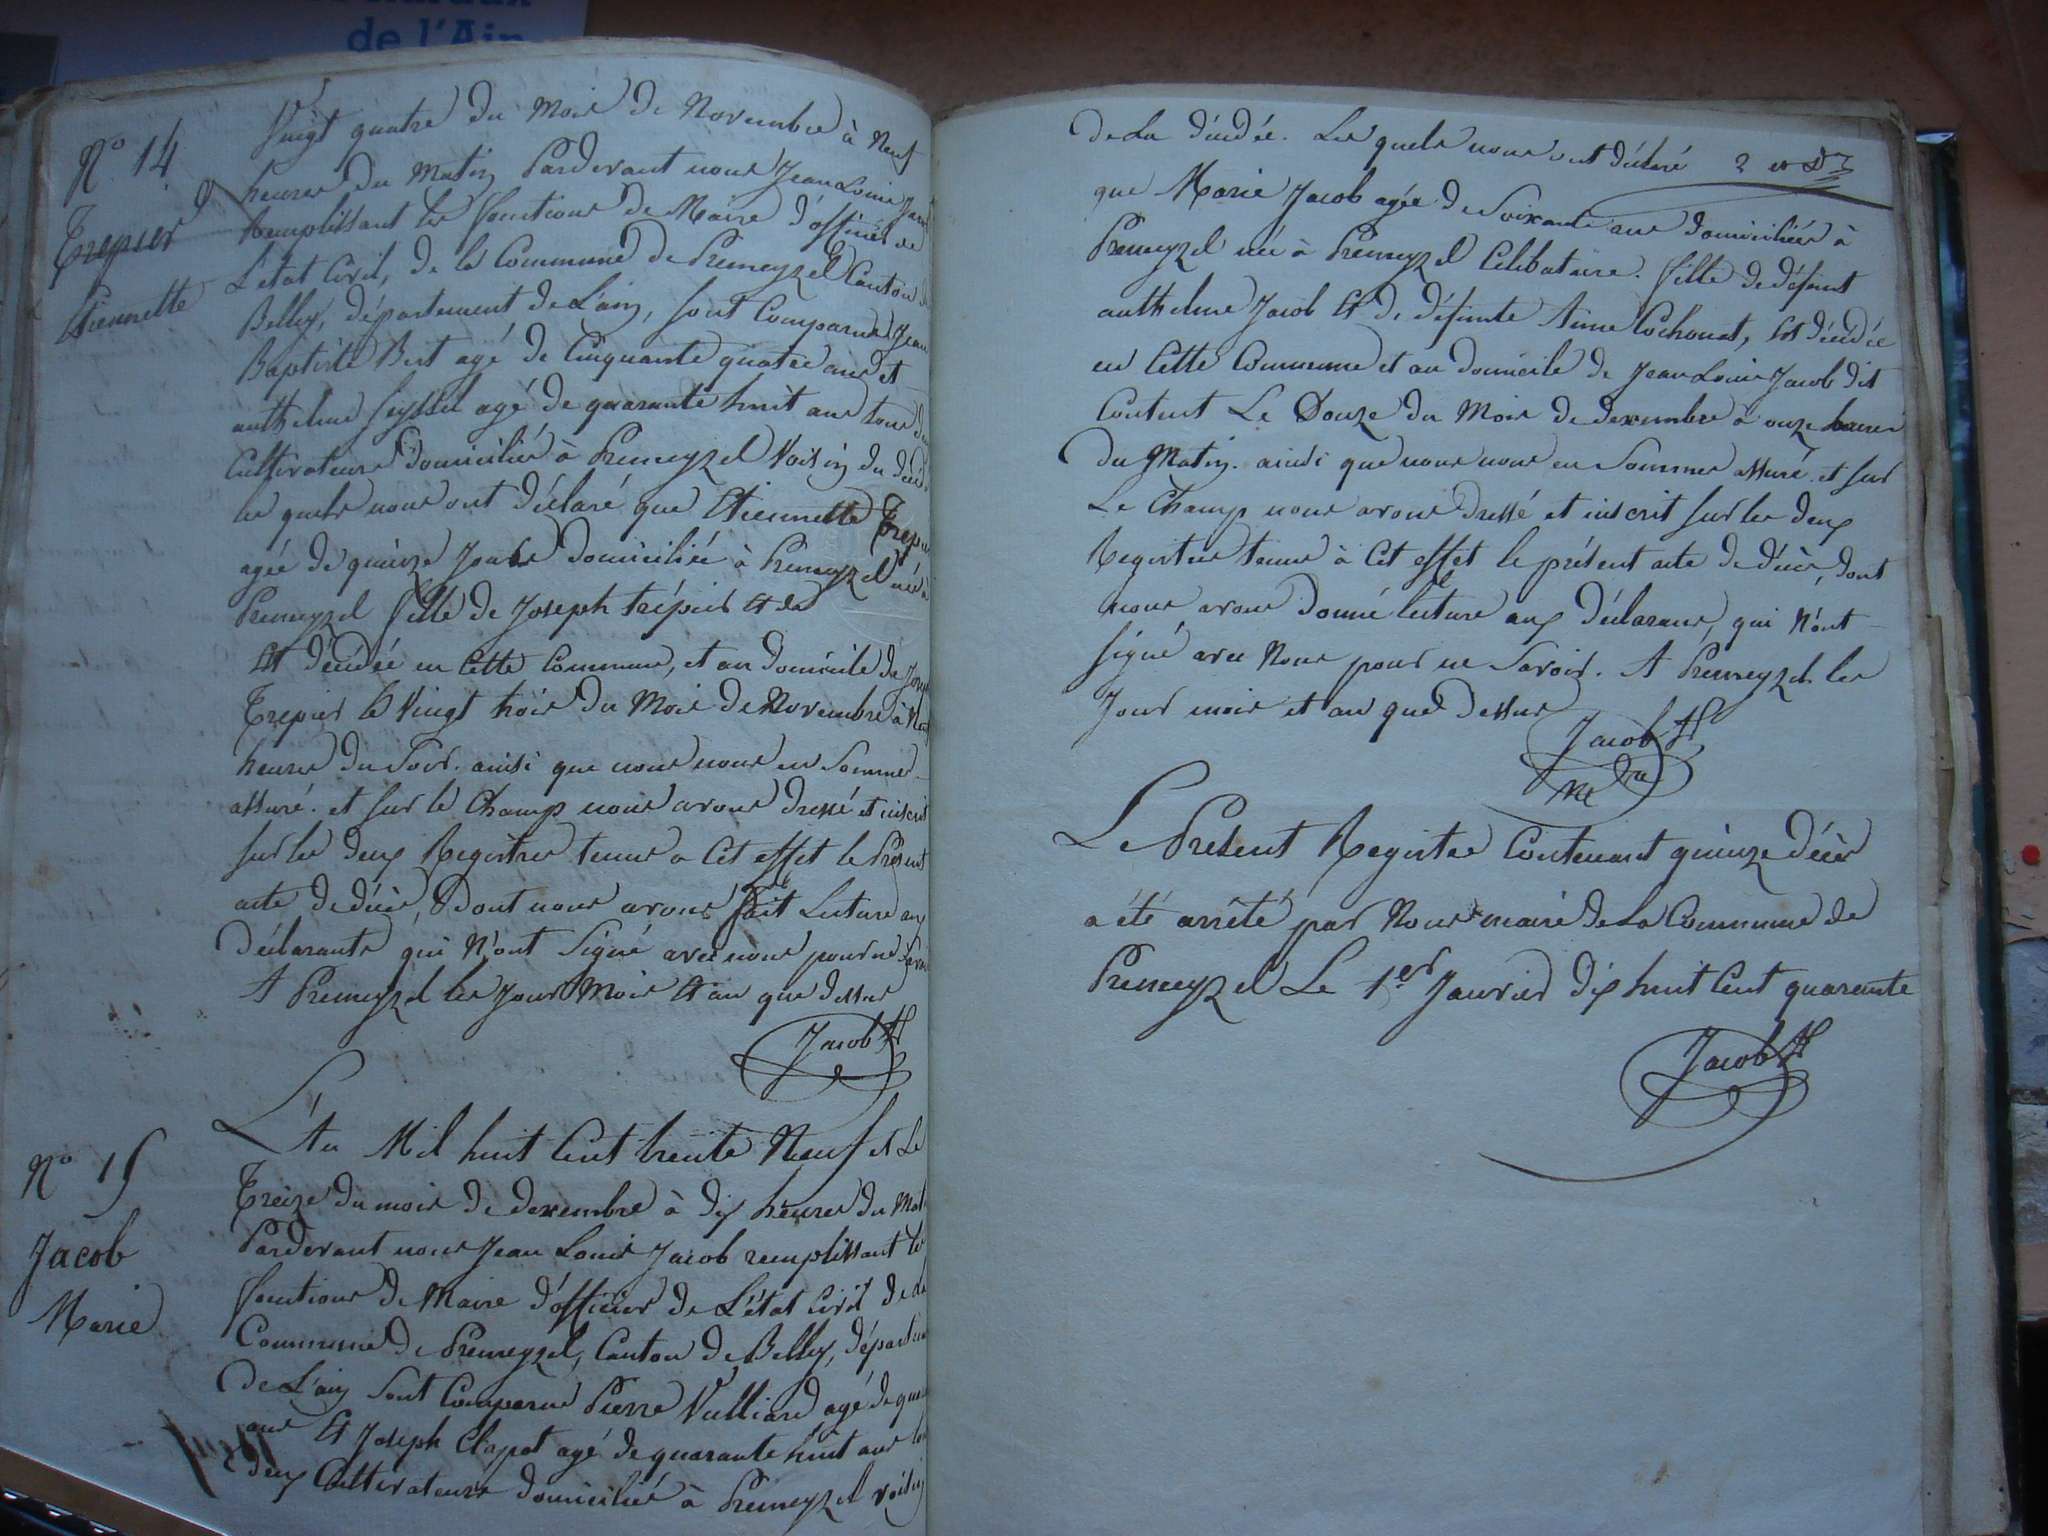 de l'Ain
N° 14
Trepier
Etiennette
Vingt quatre du Mois de Novembre à Neuf
heures du Matin Pardevant nous Jean Louis Jacob
Remplissant les fonctions de Maire d'officier de
L'état Civil, de la Commune de Premeyzel Canton de
Belley, département de L'ain, sont Comparus Jean
Baptiste Bert agé de Cinquante quatre ans et
anthelme Seyssel agé de quarante huit ans tous deux
Cultivateurs domiciliés à Premeyzel Voisin du
les quels nous ont déclaré que Etiennette Trepier
agée de quinze Jours domiciliée à Premeyzel née à
Premeyzel fille de Joseph trépier Et de
Est décédée en Cette Commune, et au domicile de Joseph
Trepier le Vingt trois du Mois de Novembre à
heures du Soir. ainsi que nous nous en Sommes
assuré. et sur le Champ nous avons dressé et inscrit
sur les deux Registres tenus a Cet effet le Présent
acte de décès, dont nous avons fait Lecture aux
déclarants qui N'ont Signé avec nous pour ne Savoir
A Premeyzel les Jour Mois Et an que dessus
Jacob
N° 15
Jacob
Marie
L'An Mil huit Cent trente Neuf et Le
Treize du mois de decembre à dix heures du Matin
Pardevant nous Jean Louis Jacob remplissant les
fonctions de Maire d'officier de L'état Civil de la
Commune de Premeyzel, Canton de Belley, département
de L'ain sont Comparus Pierre Vulliard agé de
ans Et Joseph Clapot agé de quarante huit ans tous
deux Cultivateurs domiciliés à Premeyzel voisin
de La décédée. Les quels nous ont déclaré
que Marie Jacob agée de Soixante ans domiciliée à
Premeyzel née à Premeyzel Celibataire. fille de défunt
anthelme Jacob Et de défunte Aime Cochonat, Est décédée
en Cette Commune et au domicile de Jean Louis Jacob dit
Content Le Douze du Mois de decembre à onze heures
du Matin. ainsi que nous nous en Sommes assuré. et sur
Le Champ nous avons dressé et inscrit sur les deux
Registres tenus à Cet effet le présent acte de décès, dont
nous avons donné lecture aux déclarans, qui N'ont
signé avec Nous pour ne Savoir. A Premeyzel les
Jour mois et an que dessus
Jacob
Le Present Registre Contenant quinze décès
a été arrêté par Nous maire de La Commune de
Premeyzel Le 1er Janvier dix huit Cent quarante
Jacob